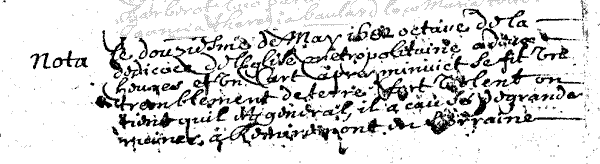 Nota Le douziesme de May 1682 octave de la
dedicace de l'Eglise metropolitaine a deux
heures et un cart apres minuict se fit un
tremblement de terre fort violent on
tient quil est general, il a causé de grande
ruines à Remiremont en Lorraine